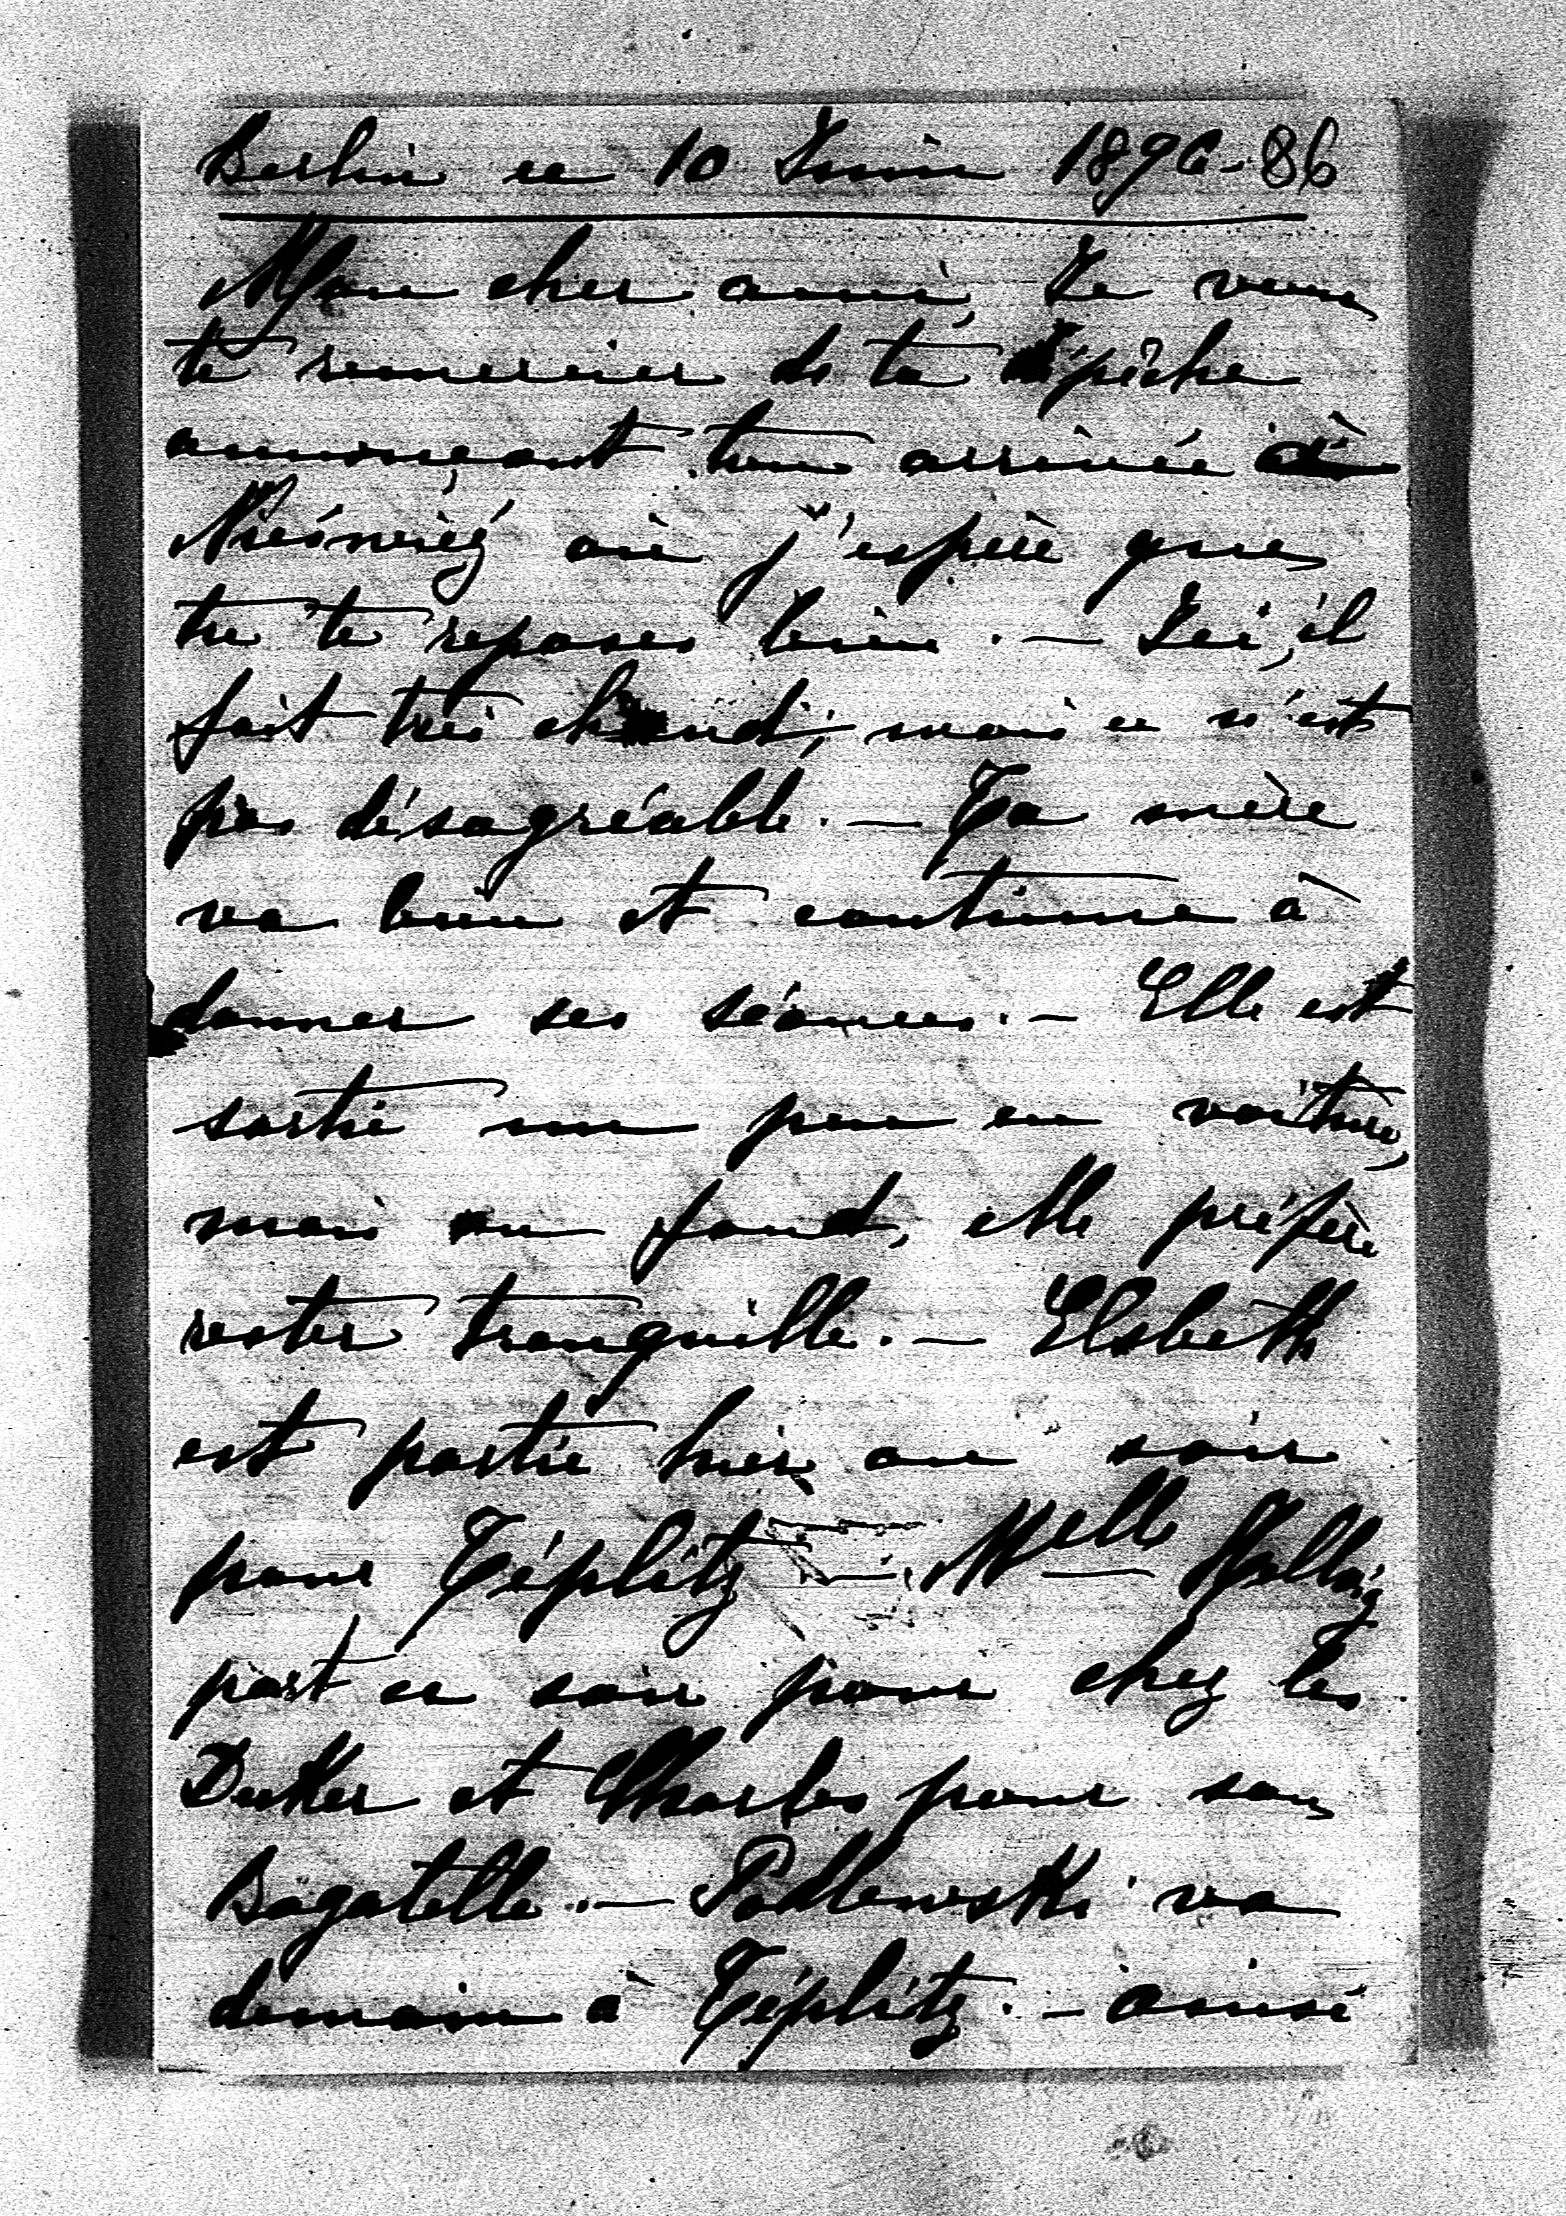 Berlin ce 10 Juin 1896 - 86
Mon cher ami, Je viens
te remercier de ta dépêche
annonçant ton arrivée à
Nieśwież où j'espère que
tu te reposes bien. — Ici, il
fait très chaud, mais ce n'est
pas désagréable. — Ta mère
va bien et continue à
donner ses séances. — Elle est
sortie un peu en voiture,
mais au fond, elle préfère
rester tranquille. — Elsbeth
est partie hier au soir
pour Téplitz — Melle
part ce soir pour chez les
et Charles pour son
Bagatelle. — Podlewski va
demain à Téplitz. — ainsi